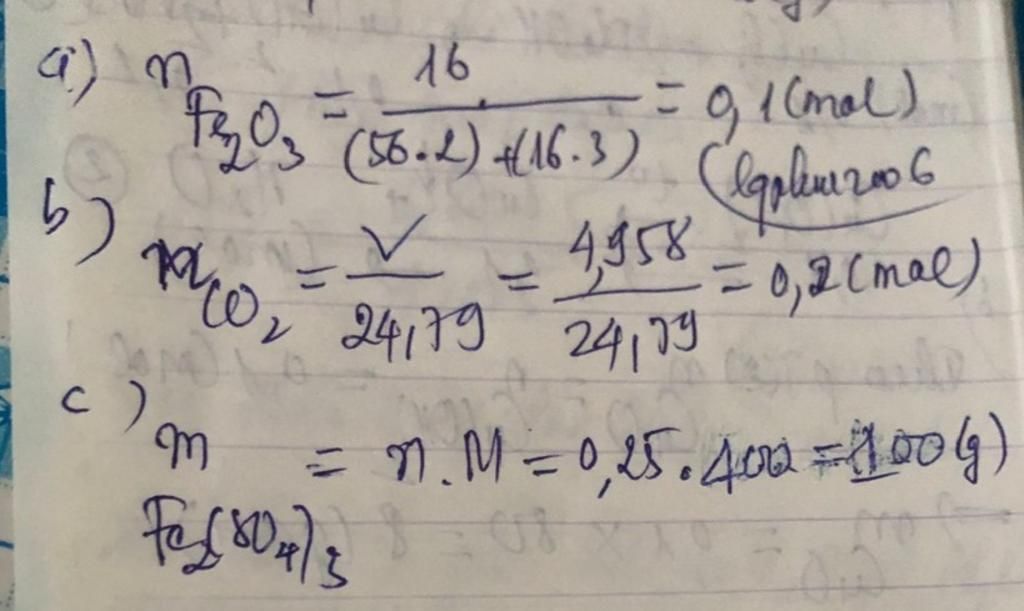 a) n Fe2O3 = 16 / (56.2) + (16.3) = 0,1 (mol)
b) n CO2 = V / 24,79 = 4,958 / 24,79 = 0,2 (mol)
c) m Fe2(SO4)3 = n.M = 0,25.400 = 100 (g)